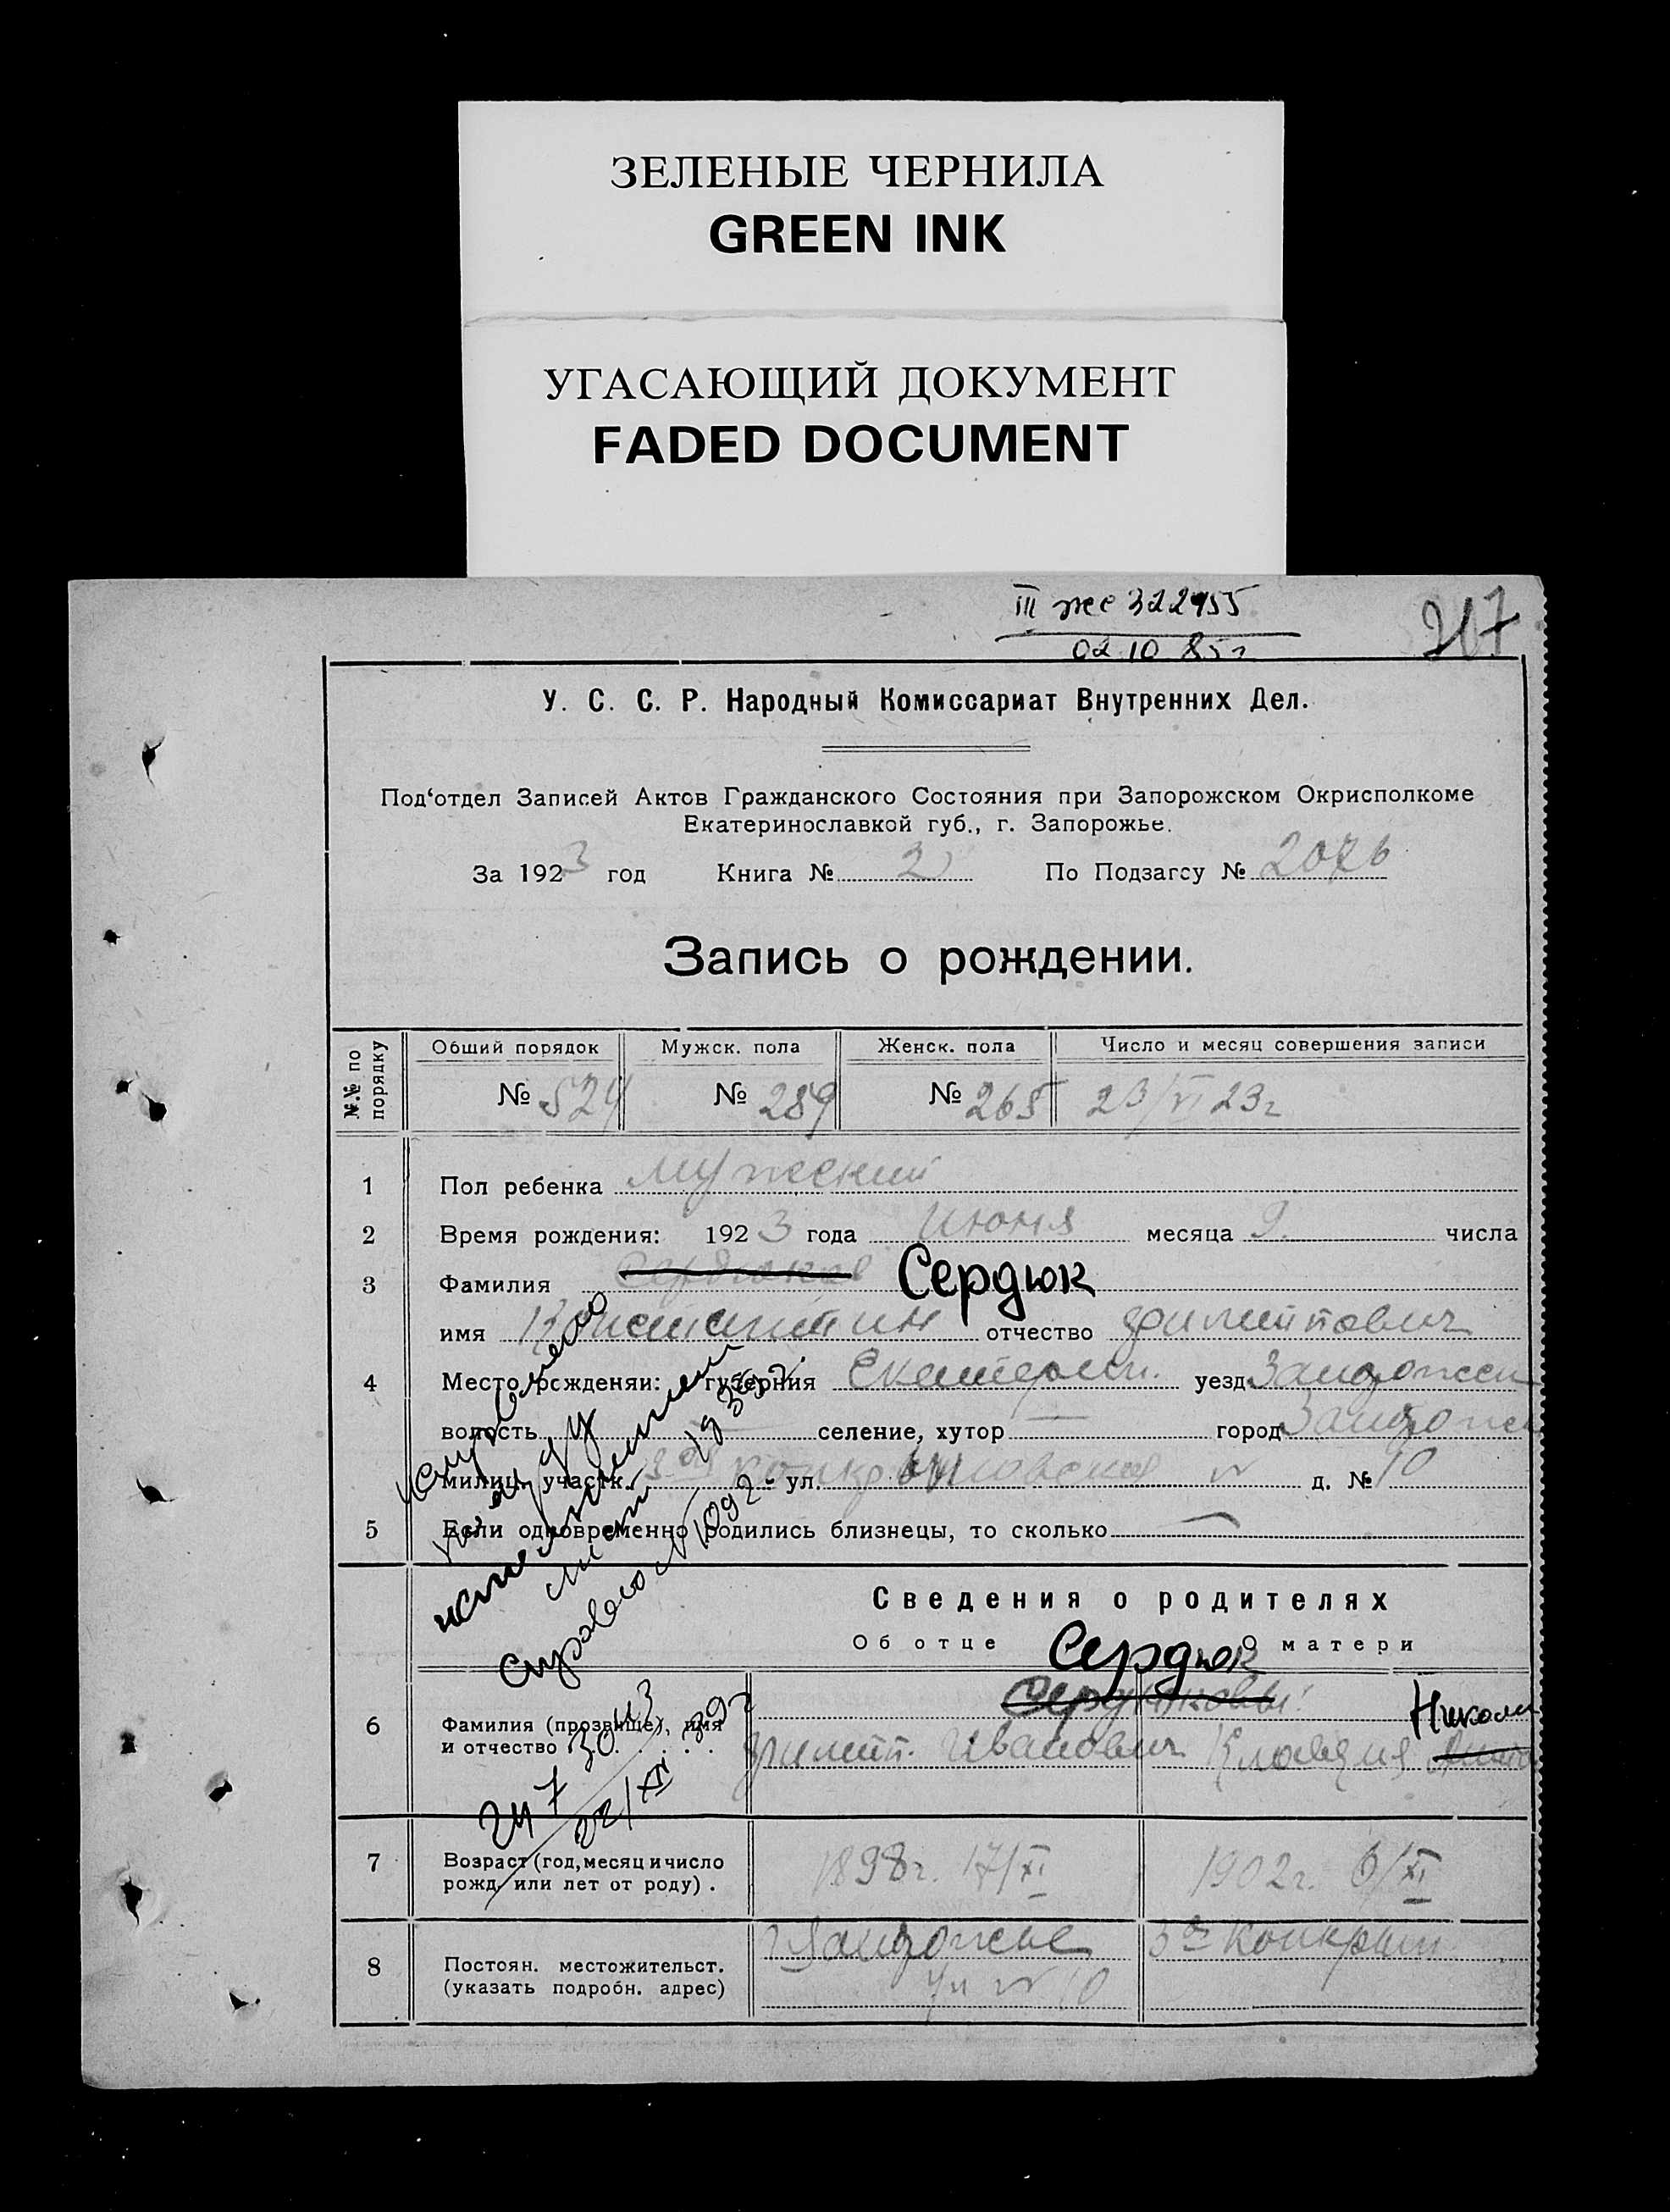 ЗЕЛЕНЫЕ ЧЕРНИЛА
GREEN INK
УГАСАЮЩИЙ ДОКУМЕНТ
FADED DOCUMENT
III же 322455
02.10.85г
У. С. С. Р. Народный Комиссариат Внутренних Дел.
Под‘отдел Записей Актов Гражданского Состояния при Запорожском Окрисполкоме
Екатеринославкой губ., г. Запорожье.
За 1923 год Книга № 2 По Подзагсу № 2076
Запись о рождении.
№.№ по порядку
Общий порядок Мужск. пола Женск. пола Число и месяц совершения записи
№ 524 № 289 № 265 23/VI 23г
1 Пол ребенка мужеский
2 Время рождения: 1923 года Июня месяца 9. числа
3 Фамилия Сердюк
имя Константин отчество Филиппович
4 Место рождения: губерния Екатерин. уезд Запорожск
волость — селение, хутор — город Запорож
милиц. участк. ул. № д. № 10
5 Если одновременно родились близнецы, то сколько —
исправлено
на
исполнительн
лист 1936г.
Сведения о родителях
Об отце О матери
Сердюк
6 Фамилия (прозвище), имя
и отчество
Филипп. Иванович Клавдия Никола
22/XI 39г
7 Возраст (год, месяц и число
рожд. или лет от роду).
1898г. 17/XI 1902г. 6/XI
8 Постоян. местожительст.
(указать подробн. адрес)
г Запорожье
ул № 10